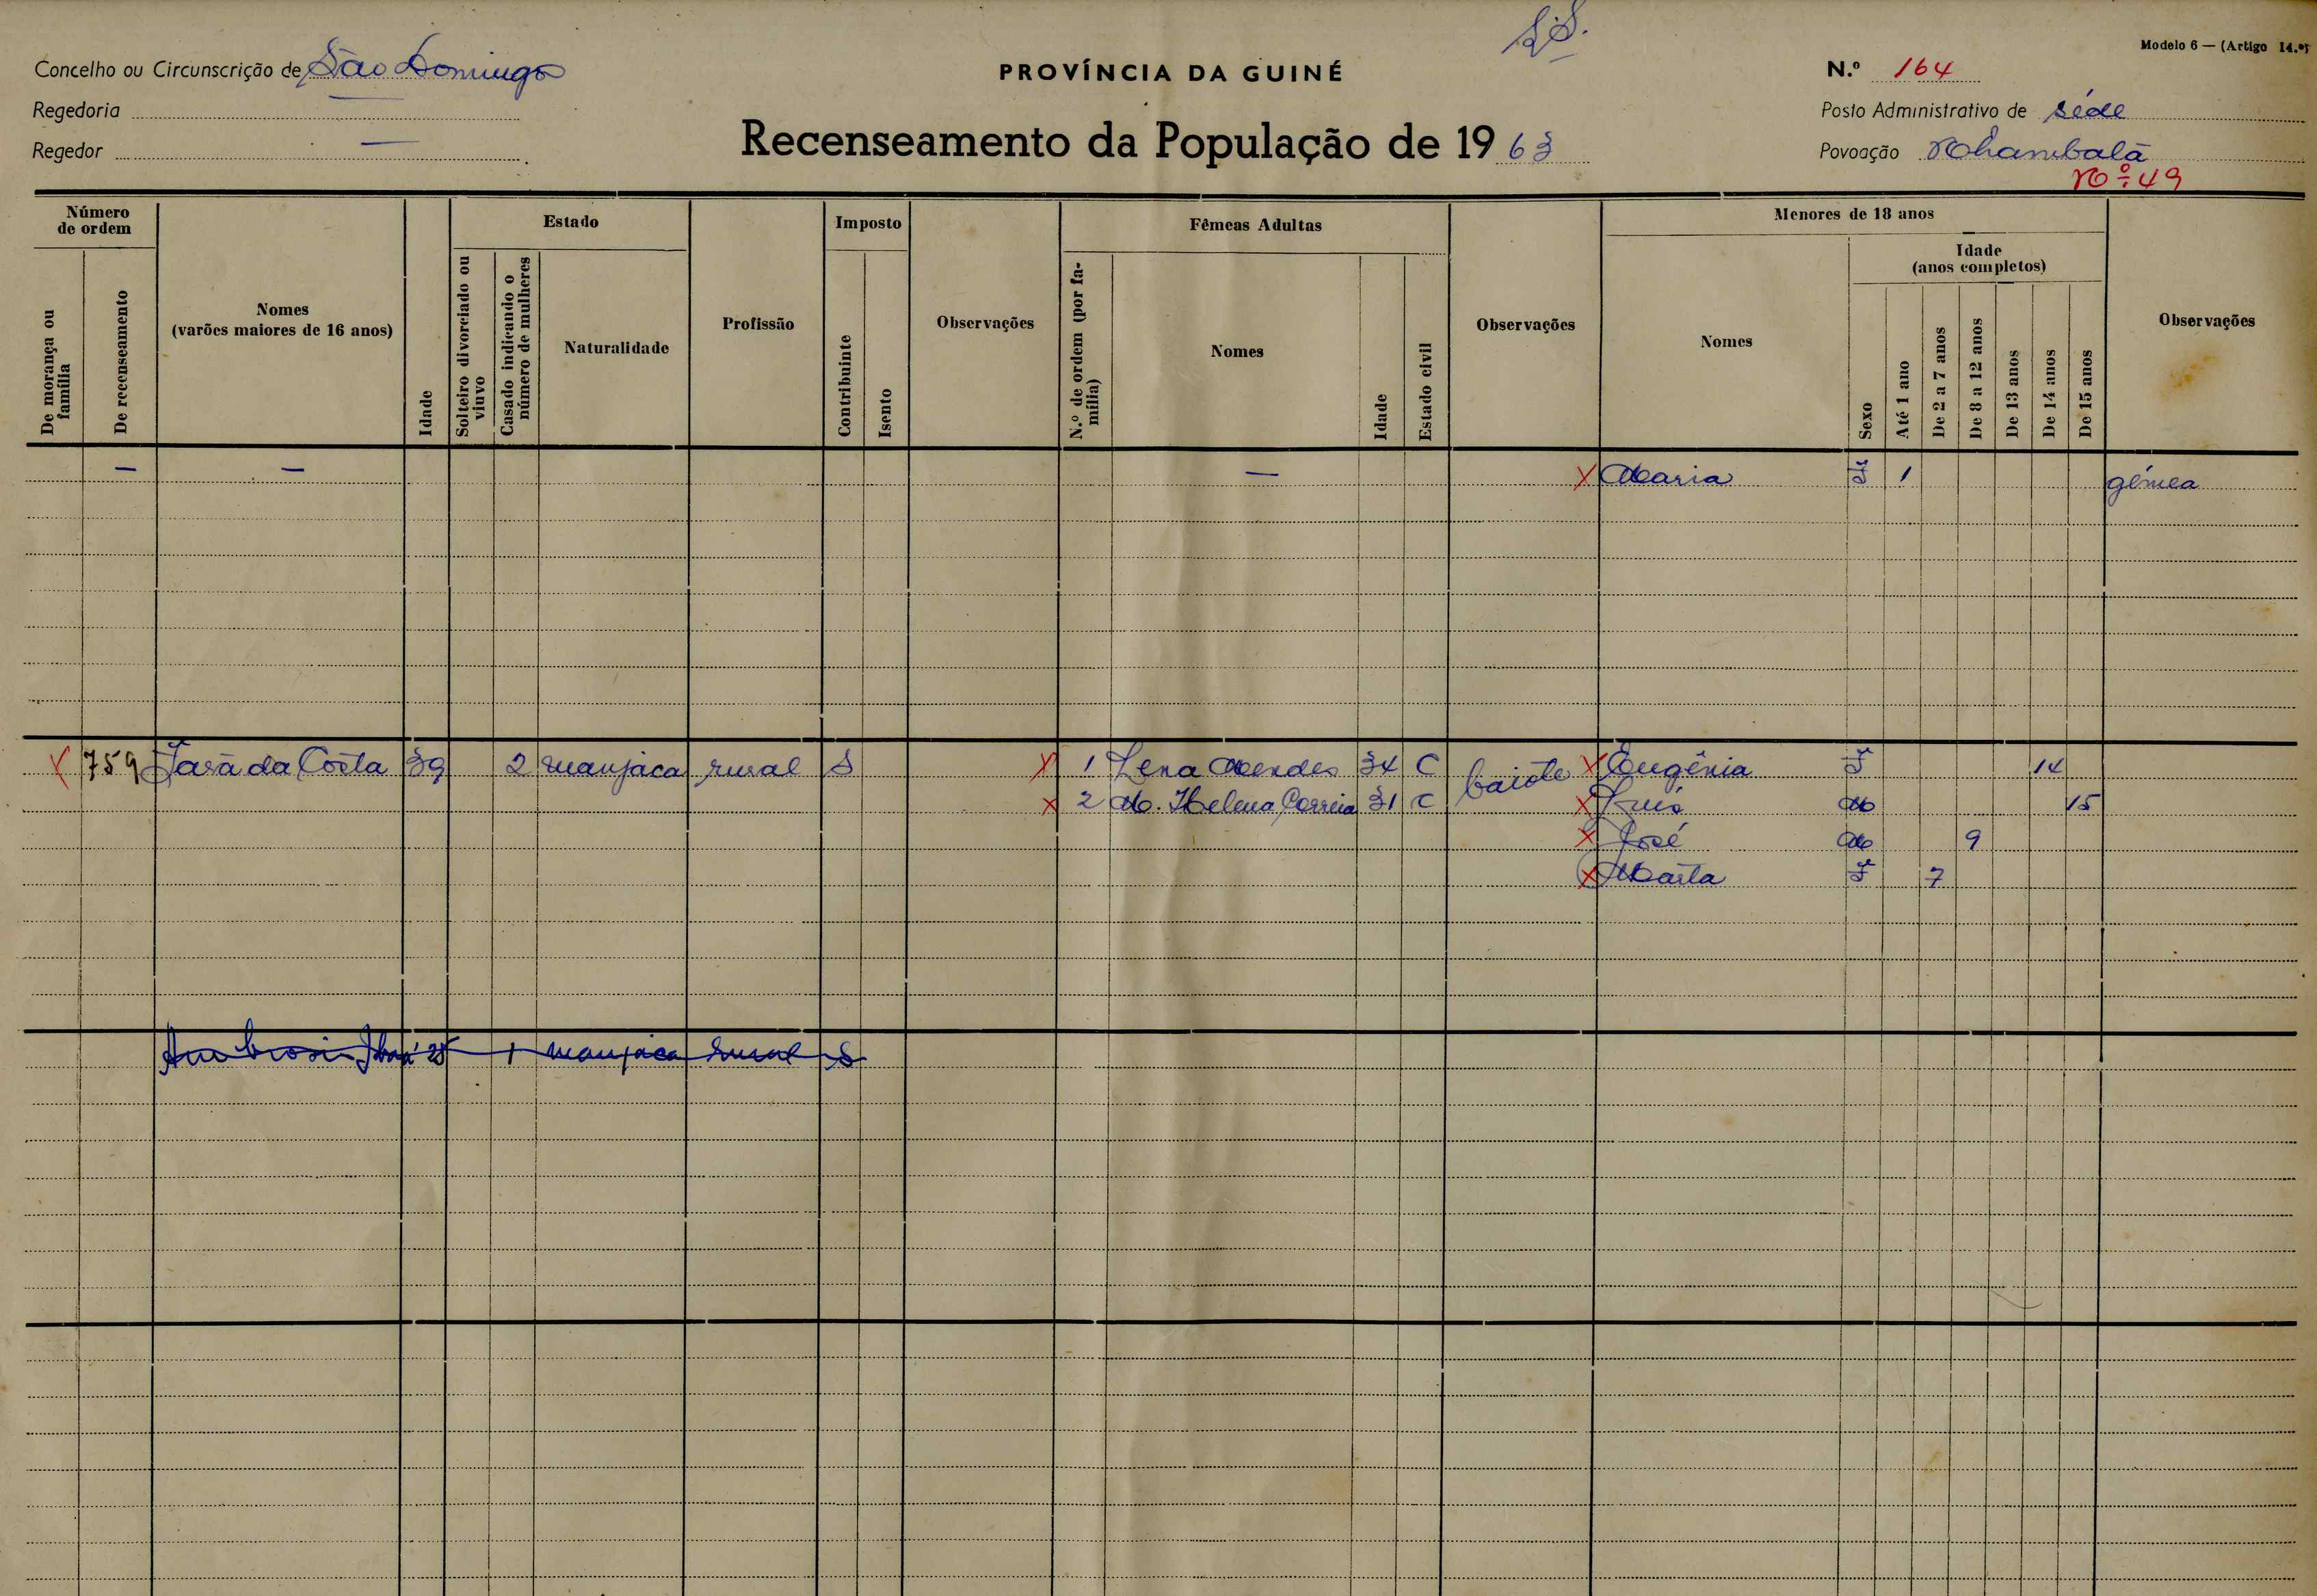 S.S.
Modelo 6 — (Artigo 14.º)
Concelho ou Circunscrição de São Domingos
PROVÍNCIA DA GUINÉ
N.º 164
Regedoria
Posto Administrativo de séde
Regedor —
Recenseamento da População de 1963
Povoação Nhambalã
Nº 49
Número de ordem
De morança ou família
De recenseamento
Nomes
(varões maiores de 16 anos)
Idade
Estado
Solteiro divorciado ou viuvo
Casado indicando o número de mulheres
Naturalidade
Profissão
Imposto
Contribuinte
Isento
Observações
Fêmeas Adultas
N.º de ordem (por família)
Nomes
Idade
Estado civil
Observações
Menores de 18 anos
Nomes
Sexo
Idade
(anos completos)
Até 1 ano
De 2 a 7 anos
De 8 a 12 anos
De 13 anos
De 14 anos
De 15 anos
Observações
— — — X Maria F 1 gémea
X 759 Jasã da Costa 39 2 manjaca rural S X 1 Lena Mendes 34 C baiote X Eugênia F 14
X 2 M. Helena Correia 31 C X Luís M 15
X José M 9
X Marta F 7
Ambrosio 25 1 manjaca rural S